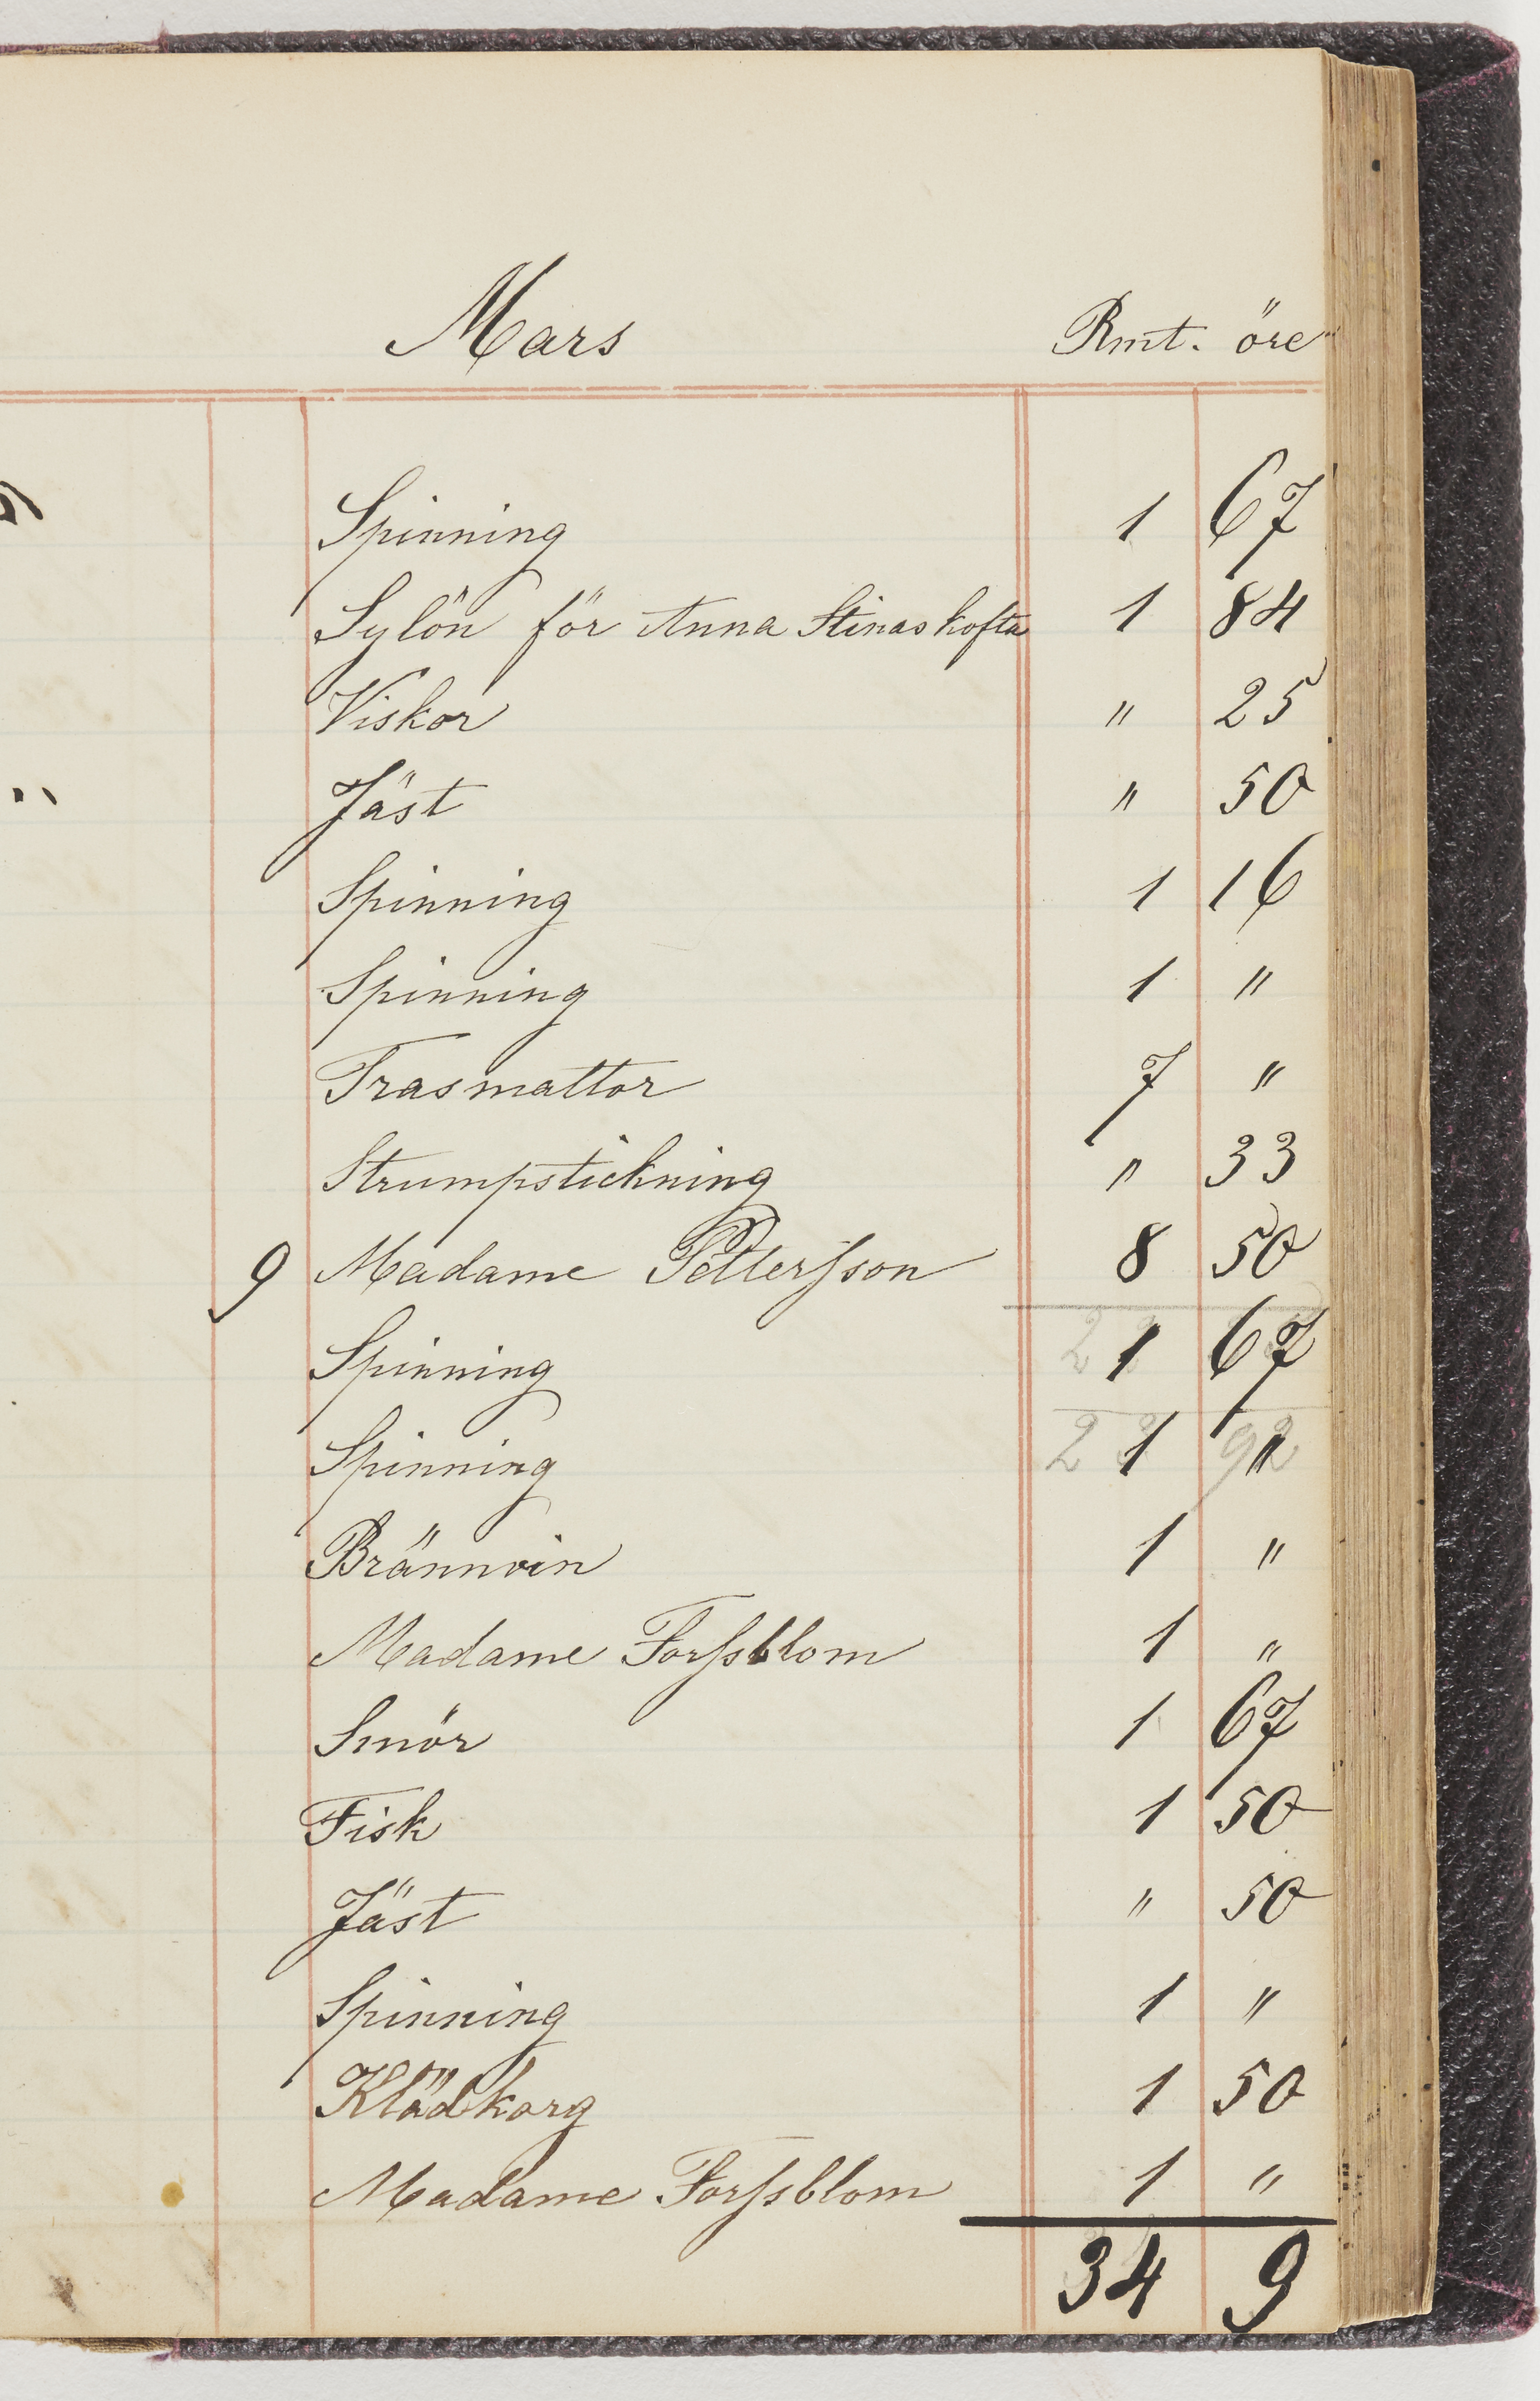 Mars Rmt. öre
Spinning 1 67
Sylön för Anna Stinas kofta 1 84
Viskor " 25
Jäst " 50
Spinning 1 16
Spinning 1 "
Trasmattor 7 "
Strumpstickning " 33
9 Madame Pettersson 8 50
Spinning 1 67
Spinning 1 "
Brännvin 1 "
Madame Forssblom 1 "
Smör 1 67
Fisk 1 50
Jäst " 50
Spinning 1 "
Klädkorg 1 50
Madame Forssblom 1 "
34 9